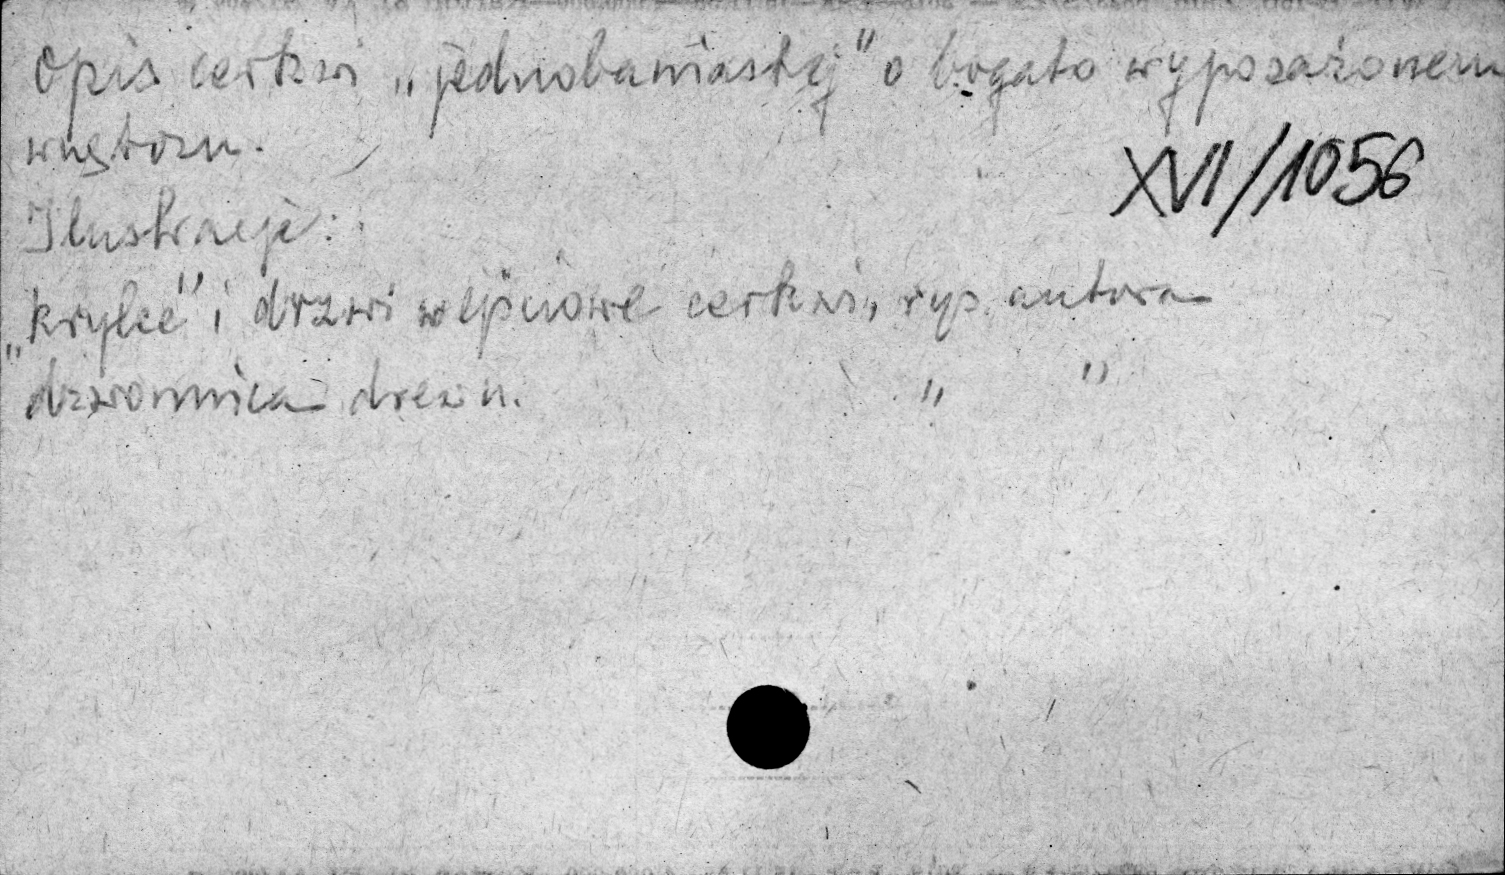 Opis cerkwi „jednobaniastej" o bogato wyposażonem
wnętrzu.
XVI/1056
Ilustracje:
„krylce" i drzwi wejściowe cerkwi, rys. autora
dzwonnica drewn. " "